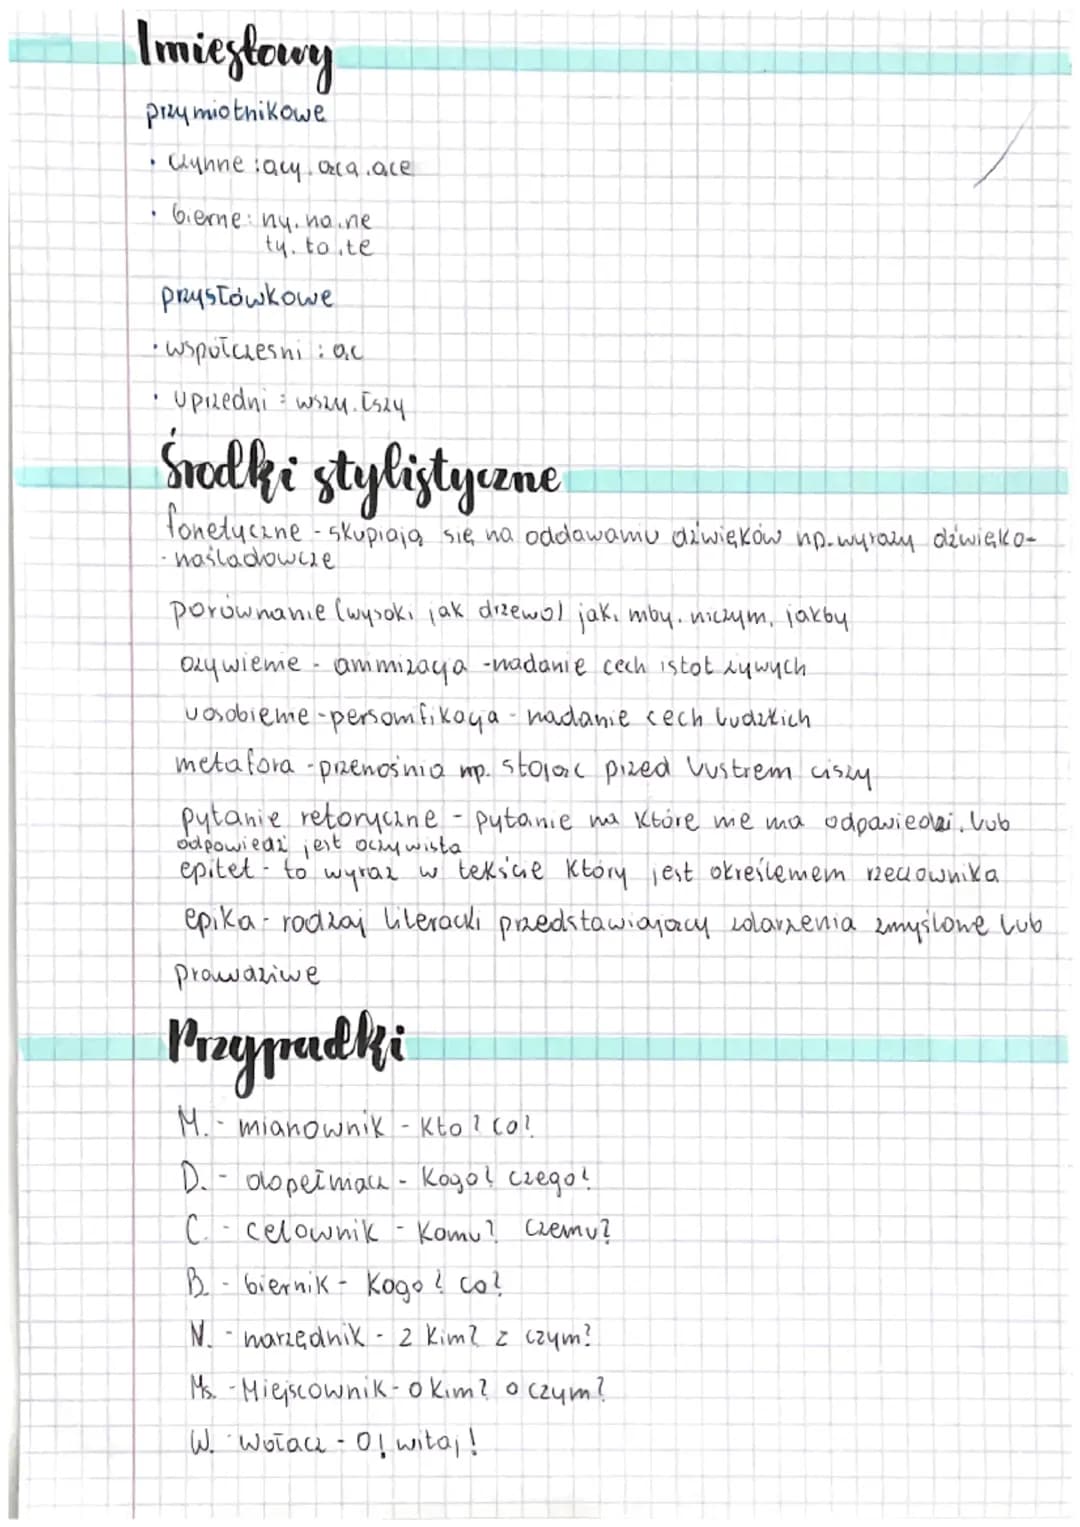 Imiesłowy
przymiotnikowe
· czynne : ący. ąca. ące
· bierne: ny. na. ne
ty. ta. te
przysłówkowe
· współczesni : ąc
· uprzedni : wszy. łszy
Środki stylistyczne
fonetyczne - skupiają się na oddawaniu dźwięków np. wyrazy dźwięko-
- naśladowcze
porównanie (wysoki jak drzewo) jak, niby. niczym, jakby
ożywienie - animizacja - nadanie cech istot żywych
uosobienie - personifikacja - nadanie cech ludzkich
metafora - przenośnia np. stojąc przed lustrem ciszy
pytanie retoryczne - pytanie na które nie ma odpowiedzi. lub
odpowiedź jest oczywista
epitet - to wyraz w tekście który jest określeniem rzeczownika
epika - rodzaj literacki przedstawiający zdarzenia zmyślone lub
prawdziwe
Przypadki
M. - mianownik - Kto? co?
D. - dopełniacz - Kogo? czego?
C. - celownik - Komu? Czemu?
B. - biernik - Kogo? co?
N. - narzędnik - z Kim? z czym?
Ms. - Miejscownik - o Kim? o czym?
W. - Wołacz - O! witaj!